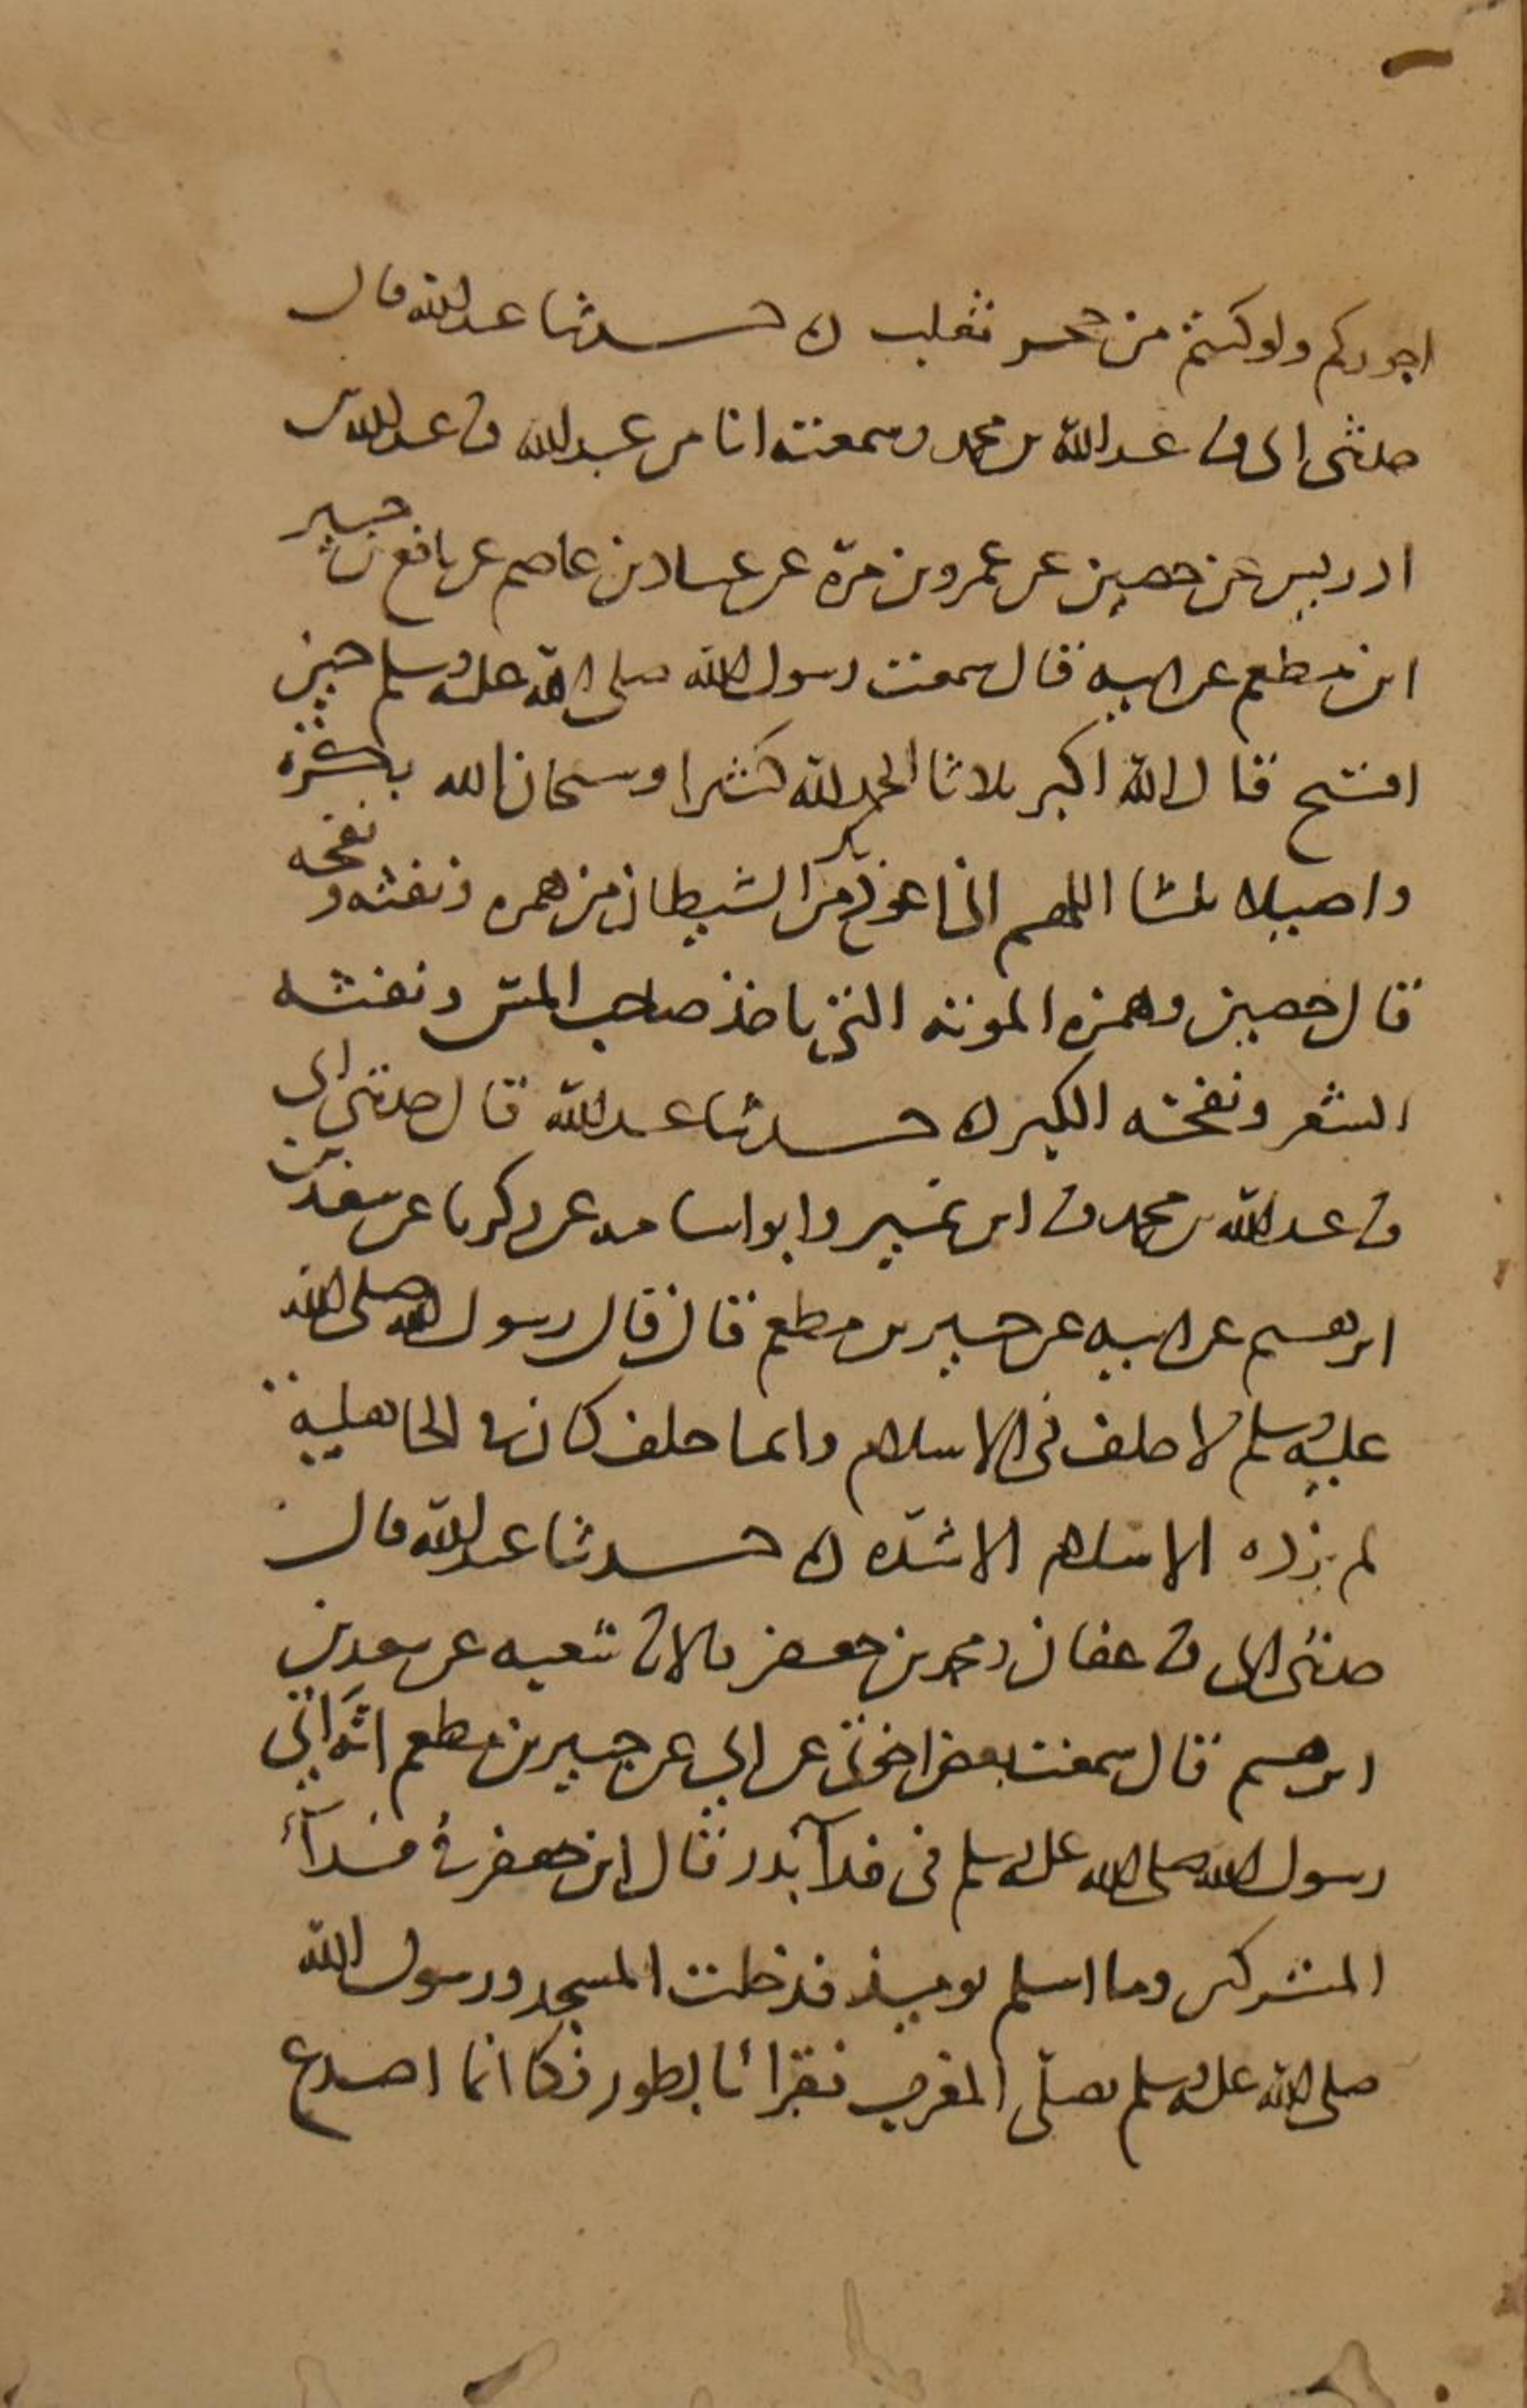 اجوركم ولو كنتم من جحر ثعلب ه حدثنا عبد الله قال
حدثني ابي ثنا عبد الله بن محمد وسمعته انا من عبد الله ثنا عبد الله بن
ادريس عن حصين عن عمرو بن مرة عن عباد بن عاصم عن نافع بن جبير
ابن مطعم عن ابيه قال سمعت رسول الله صلى الله عليه وسلم حين
افتتح قال الله اكبر ثلاثا الحمد لله كثيرا وسبحان الله بكرة
واصيلا ثلثا اللهم اني اعوذ بك من الشيطان من همزه ونفثه ونفخه
قال حصين وهمزه الموتة التي ياخذ صاحب المس ونفثه
الشعر ونفخه الكبر ه حدثنا عبد الله قال حدثني ابي
ثنا عبد الله بن محمد ثنا ابن نمير وابو اسامه عن زكريا عن سعد بن
ابرهيم عن ابيه عن جبير بن مطعم قال قال رسول الله صلى الله
عليه وسلم لا حلف في الاسلام وايما حلف كان في الجاهلية
لم يزده الاسلام الا شدة ه حدثنا عبد الله قال
حدثني ابي ثنا عفان ومحمد بن جعفر قالا ثنا شعبه عن سعد بن
ابرهيم قال سمعت بعض اخوتي عن ابي عن جبير بن مطعم انه اتى
رسول الله صلى الله عليه وسلم في فدآ بدر قال ابن جعفر في فدآء
المشركين وما اسلم يوميذ فدخلت المسجد ورسول الله
صلى الله عليه وسلم يصلي المغرب فقرأ بالطور فكانما اصدع